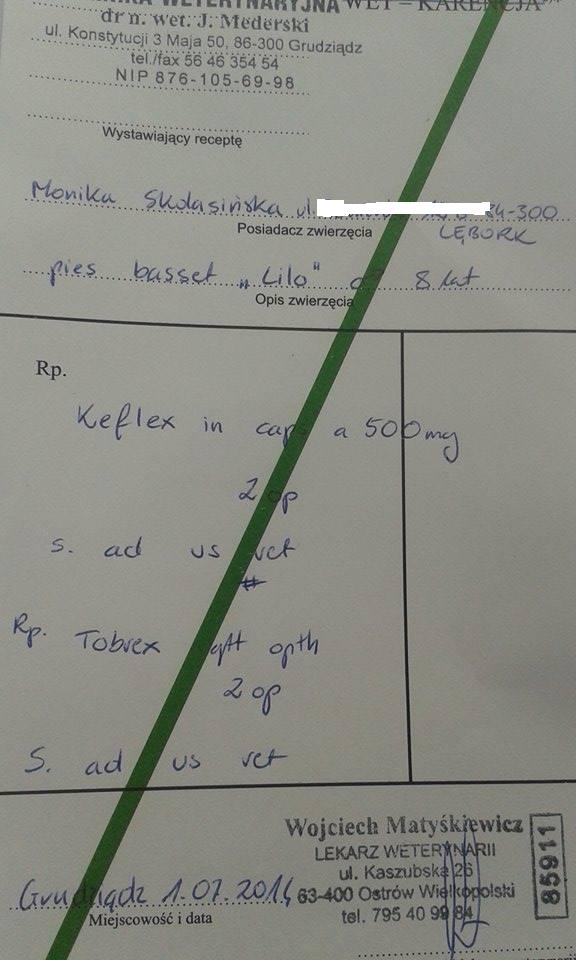 WETERYNARYJNA WET – KARENCJA
dr n. wet. J. Mederski
ul. Konstytucji 3 Maja 50, 86-300 Grudziądz
tel./fax 56 46 354 54
NIP 876-105-69-98
Wystawiający receptę
Monika Skolasińska ul. 84-300
Posiadacz zwierzęcia
LĘBORK
pies basset "Lilo" 8 lat
Opis zwierzęcia
Rp.
Keflex in caps a 500mg
2 op
S. ad us vet
#
Rp. Tobrex gtt opth
2 op
S. ad us vet
Wojciech Matyśkiewicz
LEKARZ WETERYNARII
ul. Kaszubska 26
63-400 Ostrów Wielkopolski
tel. 795 40 99 84
85911
Grudziądz 1.07.2014
Miejscowość i data